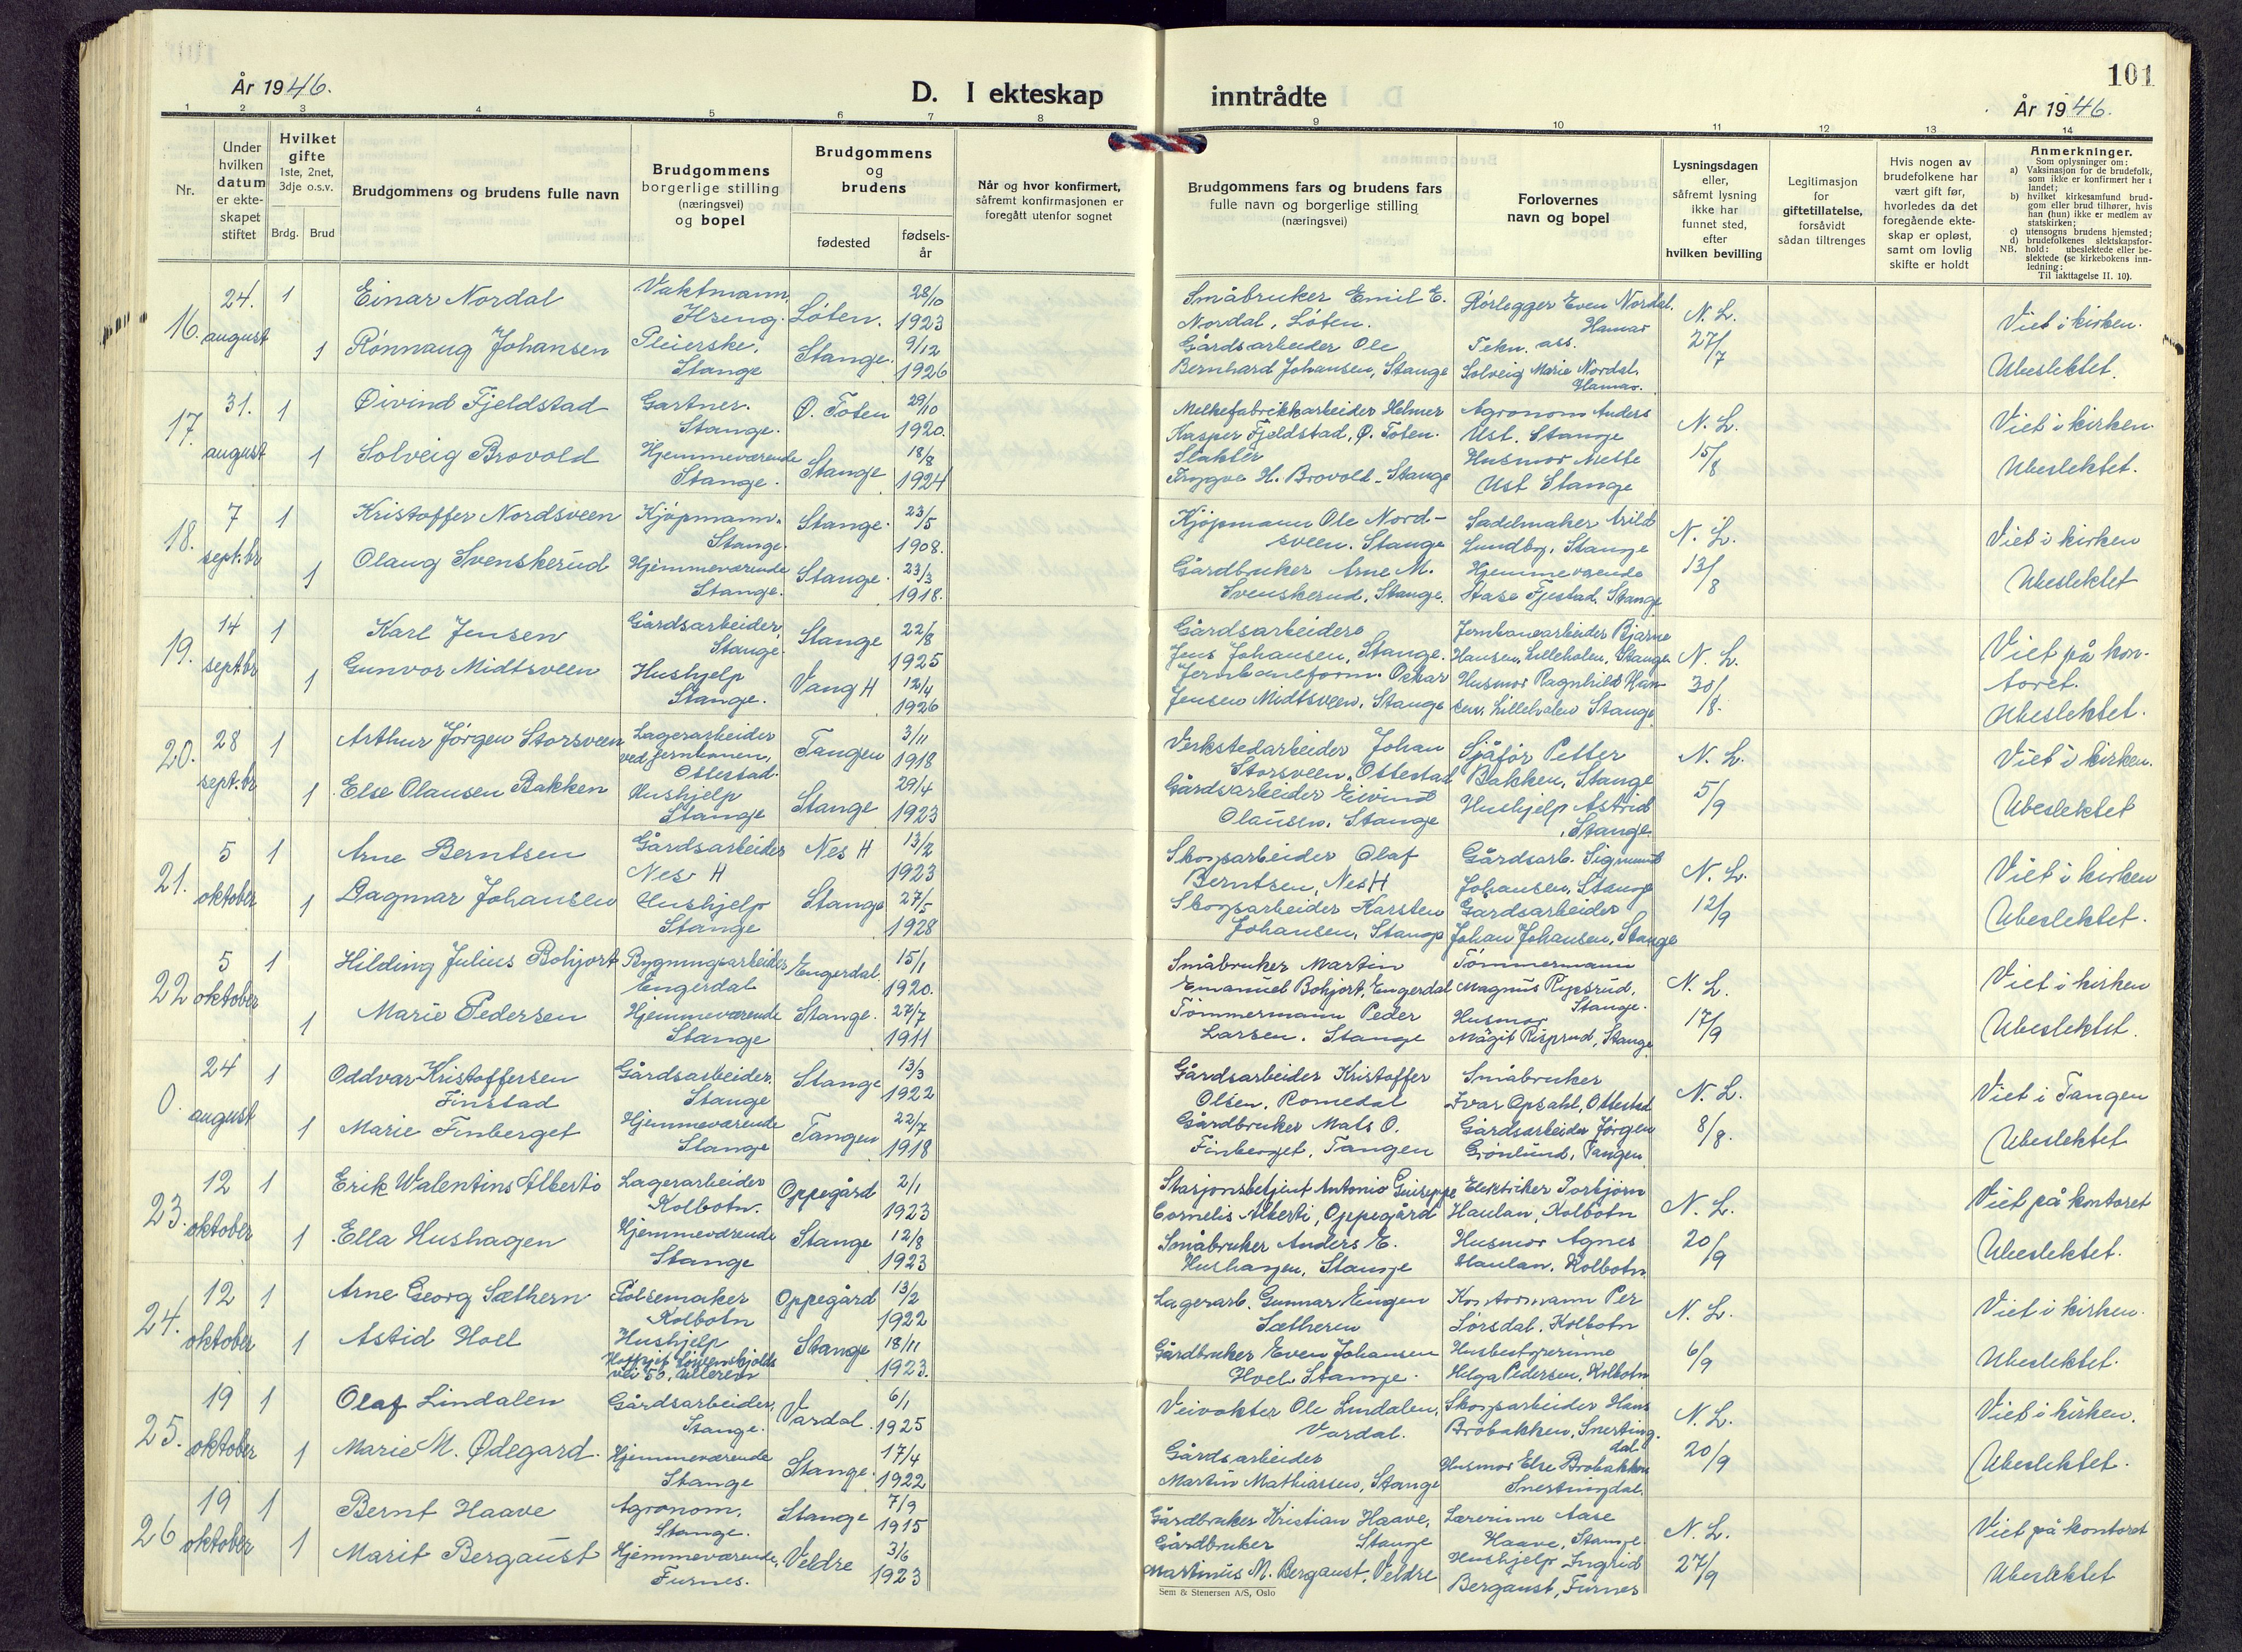 År 1946.
D. I ekteskap
inntrådte
101
År 1946.
1 2 3 4 5 6 7 8 9 10 11 12 13 14
Nr.
Under hvilken datum er ekteskapet stiftet
Hvilket gifte 1ste, 2net, 3dje o.s.v.
Brdg. Brud
Brudgommens og brudens fulle navn
Brudgommens borgerlige stilling (næringsvei) og bopel
Brudgommens og brudens
fødested
fødselsår
Når og hvor konfirmert, såfremt konfirmasjonen er foregått utenfor sognet
Brudgommens fars og brudens fars fulle navn og borgerlige stilling (næringsvei)
Forlovernes navn og bopel
Lysningsdagen eller, såfremt lysning ikke har funnet sted, efter hvilken bevilling
Legitimasjon for giftetillatelse, forsåvidt sådan tiltrenges
Hvis nogen av brudefolkene har vært gift før, hvorledes da det foregående ekteskap er opløst, samt om lovlig skifte er holdt
Anmerkninger.
Som oplysninger om:
a) Vaksinasjon for de brudefolk, som ikke er konfirmert her i landet;
b) hvilket kirkesamfund brudgom eller brud tilhører, hvis han (hun) ikke er medlem av statskirken;
c) utensogns brudens hjemsted;
d) brudefolkenes slektskapsforhold: ubeslektede eller beslektede (se kirkebokens innledning:
NB. Til iakttagelse II. 10).
16. 24. august 1 Einar Nordal Vaktmann, Løten. 28/10 1923 Småbruker Emil E. Nordal, Løten. Rørlegger Even Nordal. Hamar N. L. 27/7 Viet i kirken.
1 Rønnaug Johansen Pleierske, Stange Stange. 9/12 1926 Gårdsarbeider Ole Bernhard Johansen, Stange Tekn. ass. Solveig Marie Nordal, Hamar. Ubeslektet.
17. 31. august 1 Øivind Fjeldstad Gartner. Stange. Ø. Toten 29/10 1920. Melkefabrikkarbeider Helmer Kasper Fjeldstad, Ø. Toten. Agronom Anders Ust. Stange N. L. 15/8 Viet i kirken.
1 Solveig Brovold Hjemmeværende Stange. Stange 18/8 1924 Slakter Trygve H. Brovold, Stange Husmor Mette Ust Stange Ubeslektet.
18. 7 sept.br 1 Kristoffer Nordsveen Kjøpmann. Stange. Stange. 23/5 1908. Kjøpmann Ole Nordsveen. Stange Sadelmaker Arild Lundby, Stange N. L. 13/8 Viet i kirken
1 Olaug Svenskerud Hjemmeværende Stange. Stange. 23/3 1918. Gårdbruker Arne M. Svenskerud, Stange. Hjemmeværende Stase Fjestad, Stange Ubeslektet
19. 14 septbr 1 Karl Jensen Gårdsarbeider, Stange. Stange 22/8 1925 Gårdsarbeider Jens Johansen, Stange. Jernbanearbeider Bjarne Hansen, Lilleholen, Stange N. L. 30/8. Viet på kontoret.
1 Gunvor Midtsveen Hushjelp Stange. Vang H 12/4 1926 Jernbaneform. Oskar Jensen Midtsveen, Stange Husmor Ragnhild Hansen, Stange Ubeslektet.
20. 28 sept.br 1 Arthur Jørgen Storsveen Lagerarbeider ved jernbanen, Ottestad. Tangen 3/11 1918 Verkstedarbeider Johan Storsveen, Ottestad Sjåfør Petter Bakken, Stange N. L. 5/9 Viet i kirken.
1 Else Olausen Bakken Hushjelp Stange Stange 29/4 1923 Gårdsarbeider Eivind Olausen, Stange Hushjelp Astrid, Stange. Ubeslektet
21. 5 oktober 1 Arne Berntsen Gårdsarbeider Nes H Nes H 13/2 1923 Skogsarbeider Olaf Berntsen, Nes H Gårdsarb. Sigmund Johansen, Stange N. L. 12/9 Viet i kirken
1 Dagmar Johansen Hushjelp Stange Stange 27/5 1928 Skogsarbeider Karsten Johansen, Stange Gårdsarbeider Johan Johansen, Stange Ubeslektet.
22 5 oktober 1 Hilding Julius Bohjort Bygningsarbeider Engerdal Engerdal 15/1 1920. Småbruker Martin Emanuel Bohjort, Engerdal Tømmermann Magnus Stange. N. L. 17/9 Viet i kirken
1 Marie Pedersen Hjemmeværende Stange Stange. 27/7 1911 Tømmermann Peder Larsen. Stange Husmor Mägit Risprud, Stange Ubeslektet.
0. 24 august 1 Oddvar Kristoffersen Finstad Gårdsarbeider. Stange Stange 13/3 1922 Gårdsarbeider Kristoffer Olsen, Romedal Småbruker Ivar Opsahl, Ottestad N. L. 8/8. Viet i Tangen
1 Marie Finberget Hjemmeværende Stange Tangen 22/7 1918 Gårdbruker Mats O. Finberget, Tangen Gårdsarbeider Jørgen Grønlund, Tangen Ubeslektet
23. 12 oktober 1 Erik Walentins Alberti Lagerarbeider Kolbotn. Oppegård 2/1 1923 Stasjonsbetjent Antonio Guiseppe Cornelis Alberti, Oppegård Elektriker Torbjørn Haulan, Kolbotn N. L. 20/9 Viet på kontoret
1 Ella Hushagen Hjemmeværende Stange Stange 12/8 1923 Småbruker Anders E. Hushagen, Stange Husmor Agnes Haulan, Kolbotn Ubeslektet.
24. 12 oktober 1 Arne Georg Sæthern Pølsemaker Kolbotn Oppegård 13/2 1922 Lagerarb. Gunnar Eugen Sætheren Kontormann Per Sørsdal, Kolbotn N. L. 6/9 Viet i kirken.
1 Astid Hoel Hushjelp vei 53, Ullern Stange 18/11 1923. Gårdbruker Even Johansen Hoel, Stange. Husbestyrerinne Helga Pedersen, Kolbotn Ubeslektet.
25. 19 oktober 1 Olaf Lindalen Gårdsarbeider, Stange. Vardal. 6/1 1925 Veivokter Ole Lindalen, Vardal. Skogsarbeider Hans Brobakken, Snertingdal. N. L. 20/9 Viet i kirken.
1 Marie M. Ødegard. Hjemmeværende Stange Stange. 17/4 1922 Gårdsarbeider Martin Mathiassen, Stange Husmor Else Brobakken Snertingdal. Ubeslektet.
26 19 oktober 1 Bernt Haave Agronom. Stange. Stange 7/9 1915 Gårdbruker Kristian Haave, Stange Lærerinne Aase Haave, Stange. N. L. 27/9 Viet på kontoret
1 Marit Bergaust Hjemmeværende, Furnes. Veldre 3/6 1923 Gårdbruker Martinus M. Bergaust, Veldre Hushjelp Ingrid Bergaust, Furnes Ubeslektet
Sem & Stenersen A/S, Oslo